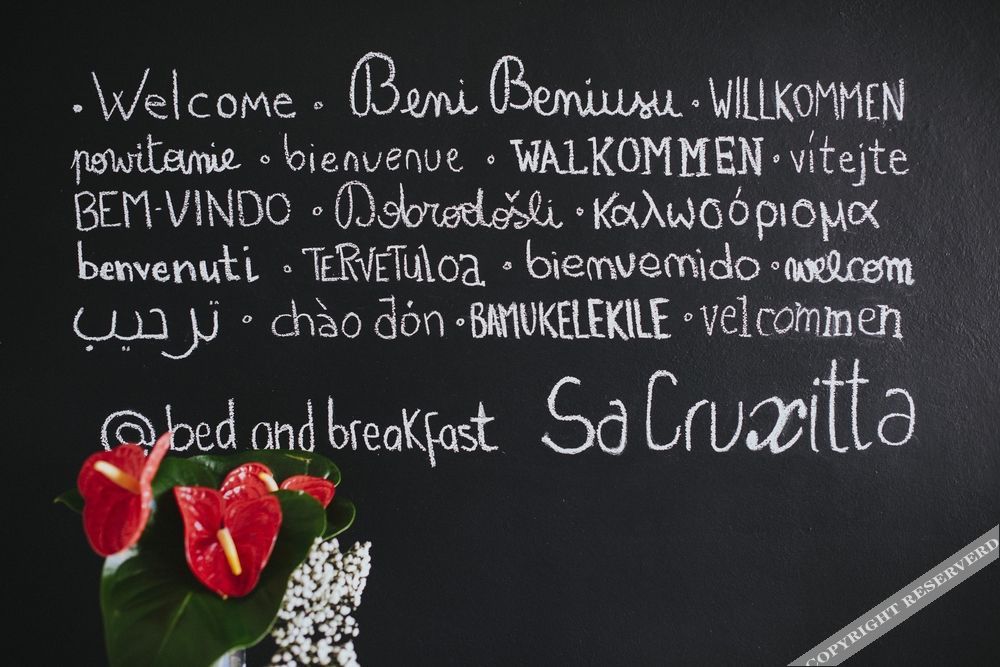 . Welcome . Beni Beniusu . WILLKOMMEN
powitanie . bienvenue . WALKOMMEN . vítejte
BEM-VINDO . Dobrodošli . καλωσόρισμα
benvenuti . TERVETULOA . biemvemido . welcom
ترحيب . chào đón . BAMUKELEKILE . velcommen
@ bed and breakfast Sa Cruxitta
COPYRIGHT RESERVERD